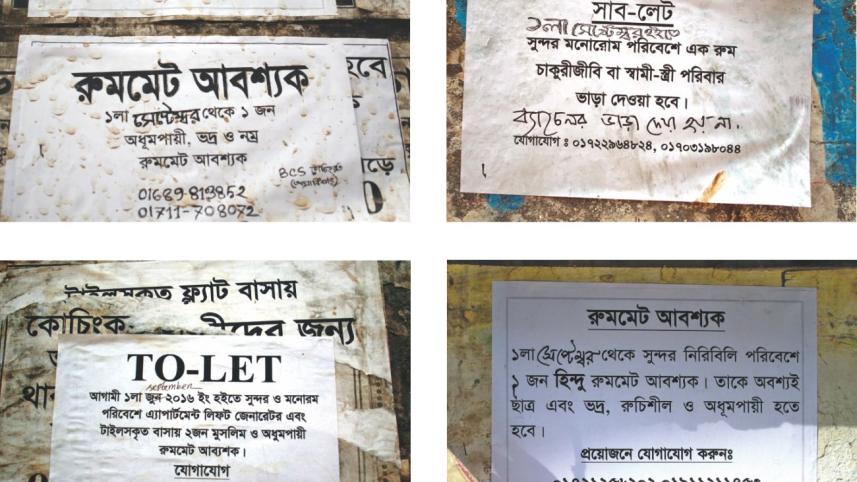 রুমমেট আবশ্যক
১লা সেপ্টেম্বর থেকে ১ জন
অধূমপায়ী, ভদ্র ও নম্র
রুমমেট আবশ্যক
BCS
01689-819852
01711-708072
হবে
ড়ে
সাব-লেট
১লা সেপ্টেম্বর হইতে
সুন্দর মনোরোম পরিবেশে এক রুম
চাকুরীজীবি বা স্বামী-স্ত্রী পরিবার
ভাড়া দেওয়া হবে।
ব্যাচেলর ভাড়া দেয়া হয় না.
যোগাযোগ : ০১৭২২৯৬৪৮২৪, ০১৭০৩১৯৮০৪৪
টাইলসকৃত ফ্ল্যাট বাসায়
কোচিংক
দের জন্য
থা
TO-LET
september
আগামী ১লা জুন-২০১৬ ইং হইতে সুন্দর ও মনোরম
পরিবেশে এ্যাপার্টমেন্ট লিফট জেনারেটর এবং
টাইলসকৃত বাসায় ২জন মুসলিম ও অধুমপায়ী
রুমমেট আব্যশক।
যোগাযোগ
রুমমেট আবশ্যক
১লা সেপ্টেম্বর থেকে সুন্দর নিরিবিলি পরিবেশে
১ জন হিন্দু রুমমেট আবশ্যক। তাকে অবশ্যই
ছাত্র এবং ভদ্র, রুচিশীল ও অধূমপায়ী হতে
হবে।
প্রয়োজনে যোগাযোগ করুনঃ